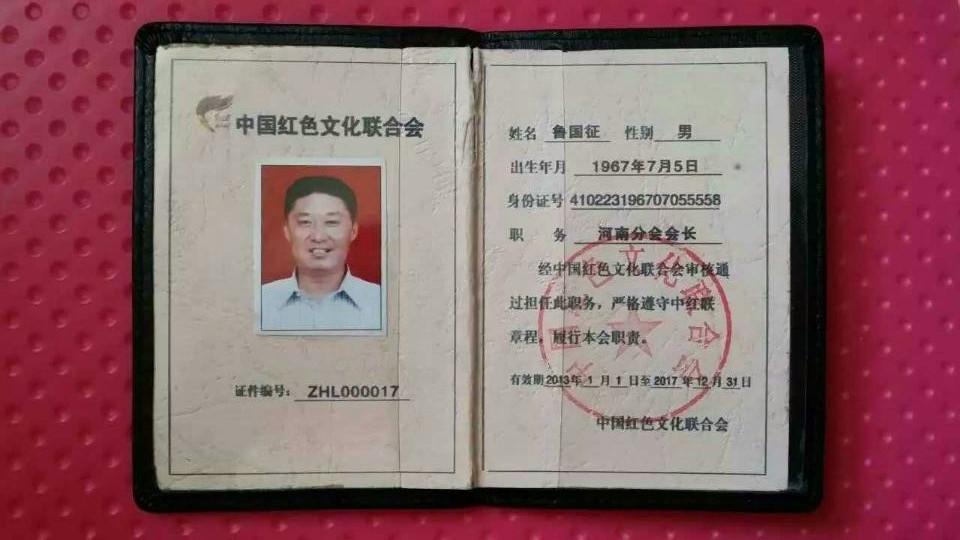 中国红色文化联合会
证件编号：ZHL000017
姓名 鲁国征 性别 男
出生年月 1967年7月5日
身份证号 410223196707055558
职务 河南分会会长
经中国红色文化联合会审核通
过担任此职务，严格遵守中红联
章程，履行本会职责。
有效期2013年1月1日至2017年12月31日
中国红色文化联合会
中国红色文化联合会